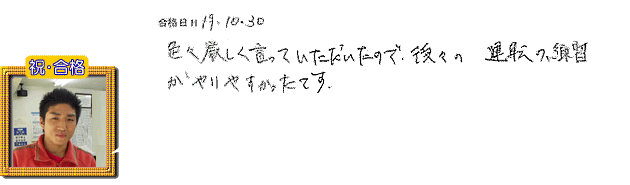 合格日 19.10.30
色々厳しく言っていただいたので、後々の 運転の練習
がやりやすかったです.
祝・合格